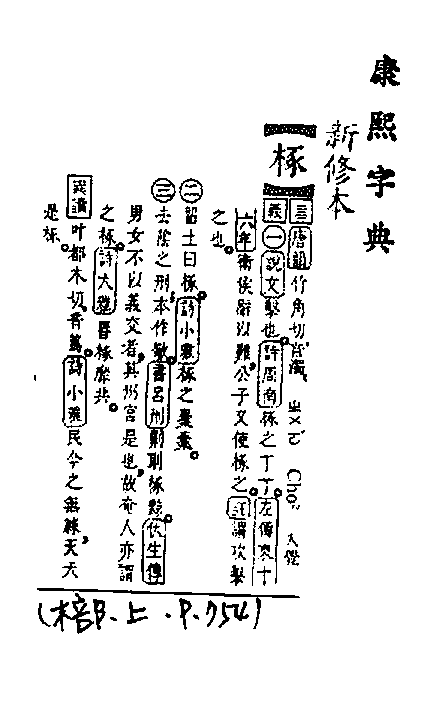 康熙字典
新修本
【椓】
音 唐韻 竹角切,音濁. ㄓㄨㄛˊ Cho² 入覺
義 ㊀ 說文 擊也。詩周南 椓之丁丁。左傳哀十
六年 衛侯辭以難,公子又使椓之。註 謂攻擊
之也。
㊁ 土曰椓。詩小雅 椓之橐橐。
㊂ 去陰之刑,本作斀。書呂刑 劓刵椓黥。伏生傳
男女不以義交者,其刑宮是也,故奄人亦謂
之椓。詩大雅 昬椓靡共。
異讀 叶都木切,音篤。詩小雅 民今之無祿,天夭
是椓。
(木部.上.P.754)